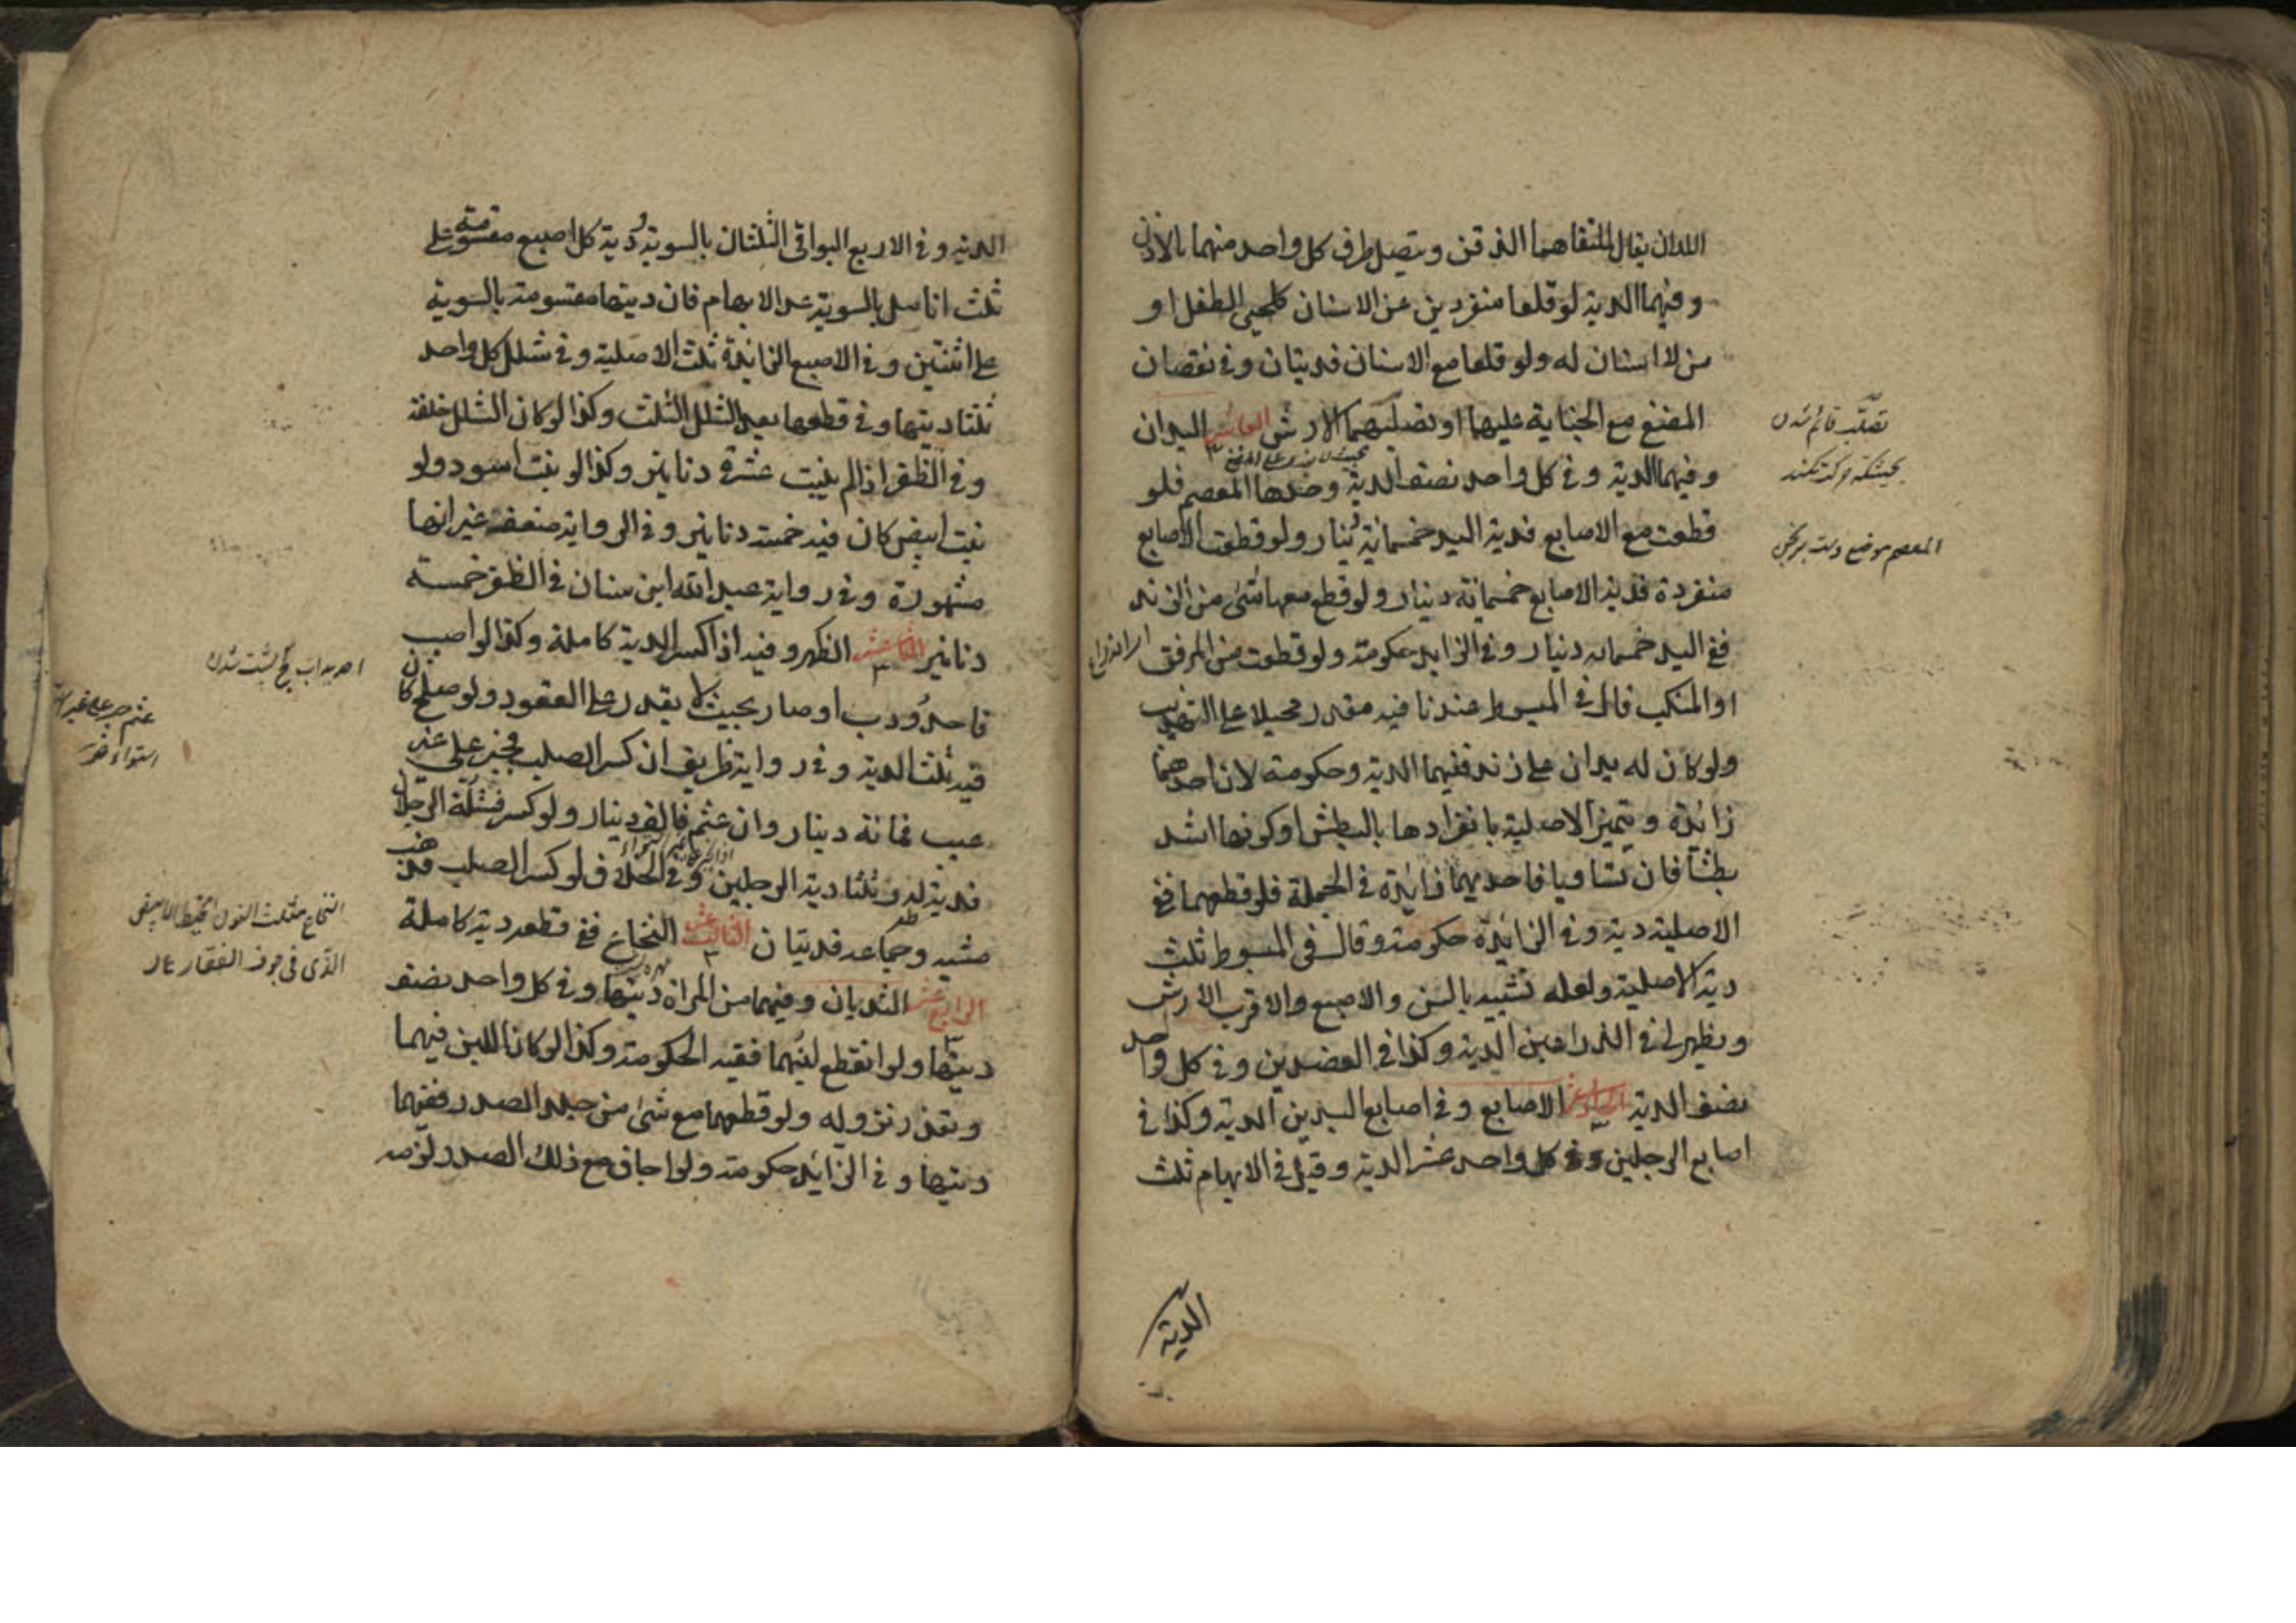 اللذان يقال لملتقاهما الذقن ويتصل طرف كل واحد منهما بالاذن
وفيهما الدية لو قلعا منفردين عن الاسنان كلحيى الطفل او
من لا اسنان له ولو قلعا مع الاسنان فديتان وفي نقصان
المضغ مع الجناية عليهما او تصلبهما الارش العاشر اليدان
وفيهما الدية وفي كل واحد نصف الدية وحدها المعصم فلو
قطعت مع الاصابع فدية اليد خمسمائة دينار ولو قطعت الاصابع
منفردة فدية الاصابع خمسمائة دينار ولو قطع معها شئ من الزند
ففي اليد خمسمائه دينار وفي الزايد حكومة ولو قطعت من المرفق
او المنكب قال في المبسوط عندنا فيه مقدر محيلا على التهذيب
ولو كان له يدان على زند ففيهما الدية وحكومة لان احدهما
زائدة وتتميز الاصلية بانفرادها بالبطش او كونها اشد
بطشا فان تساويا فاحديهما زائدة في الجملة فلو قطعهما ففي
الاصلية دية وفي الزائدة حكومة وقال في المبسوط ثلث
دية الاصلية ولعله تشبيه بالسن والاصبع والاقرب الارش
ويظهر لي في الذراعين الدية وكذا في العضدين وفي كل واحد
نصف الدية الحادي عشر الاصابع وفي اصابع اليدين الدية وكذا في
اصابع الرجلين وفي كل واحد عشر الدية وقيل في الابهام ثلث
الدية
تصلب قائم شدن
المعصم موضع
الدية وفي الاربع البواقي الثلثان بالسوية ودية كل اصبع مقسومة على
ثلث انامل بالسوية عدا الابهام فان ديتها مقسومة بالسوية
على اثنتين وفي الاصبع الزائدة ثلث الاصلية وفي شلل كل واحد
ثلثا ديتها وفي قطعها بعد الشلل الثلث وكذا لو كان الشلل خلقة
وفي الظفر اذا لم ينبت عشرة دنانير وكذا لو نبت اسود ولو
نبت ابيض كان فيه خمسة دنانير وفي الرواية ضعف غير انها
مشهورة وفي رواية عبد الله ابن سنان في الظفر خمسة
دنانير الثاني عشر الظهر وفيه اذا كسر الدية كاملة وكذا لو اصيب
فاحدودب او صار بحيث لا يقدر على القعود ولو صلح كان
فيه ثلث الدية وفي رواية ظريف ان كسر الصلب فجبر على غير
عيب فمائة دينار وان عثم فالف دينار ولو كسر فشلت الرجلان
فدية له وثلثا دية الرجلين وفي الخلاف لو كسر الصلب فذهب
مشيه وجماعه فديتان الثالث عشر النخاع ففي قطعه دية كاملة
الرابع عشر الثديان وفيهما من المراة ديتها وفي كل واحد نصف
ديتها ولو انقطع لبنهما ففيه الحكومة وكذا لو كان اللبن فيهما
وتعذر نزوله ولو قطعهما مع شئ من جلد الصدر ففيهما
ديتها وفي الزايد حكومة ولو اجاف مع ذلك الصدر لزمه
النخاع مثلث النون الخيط الابيض
الذى فى جوف الفقار